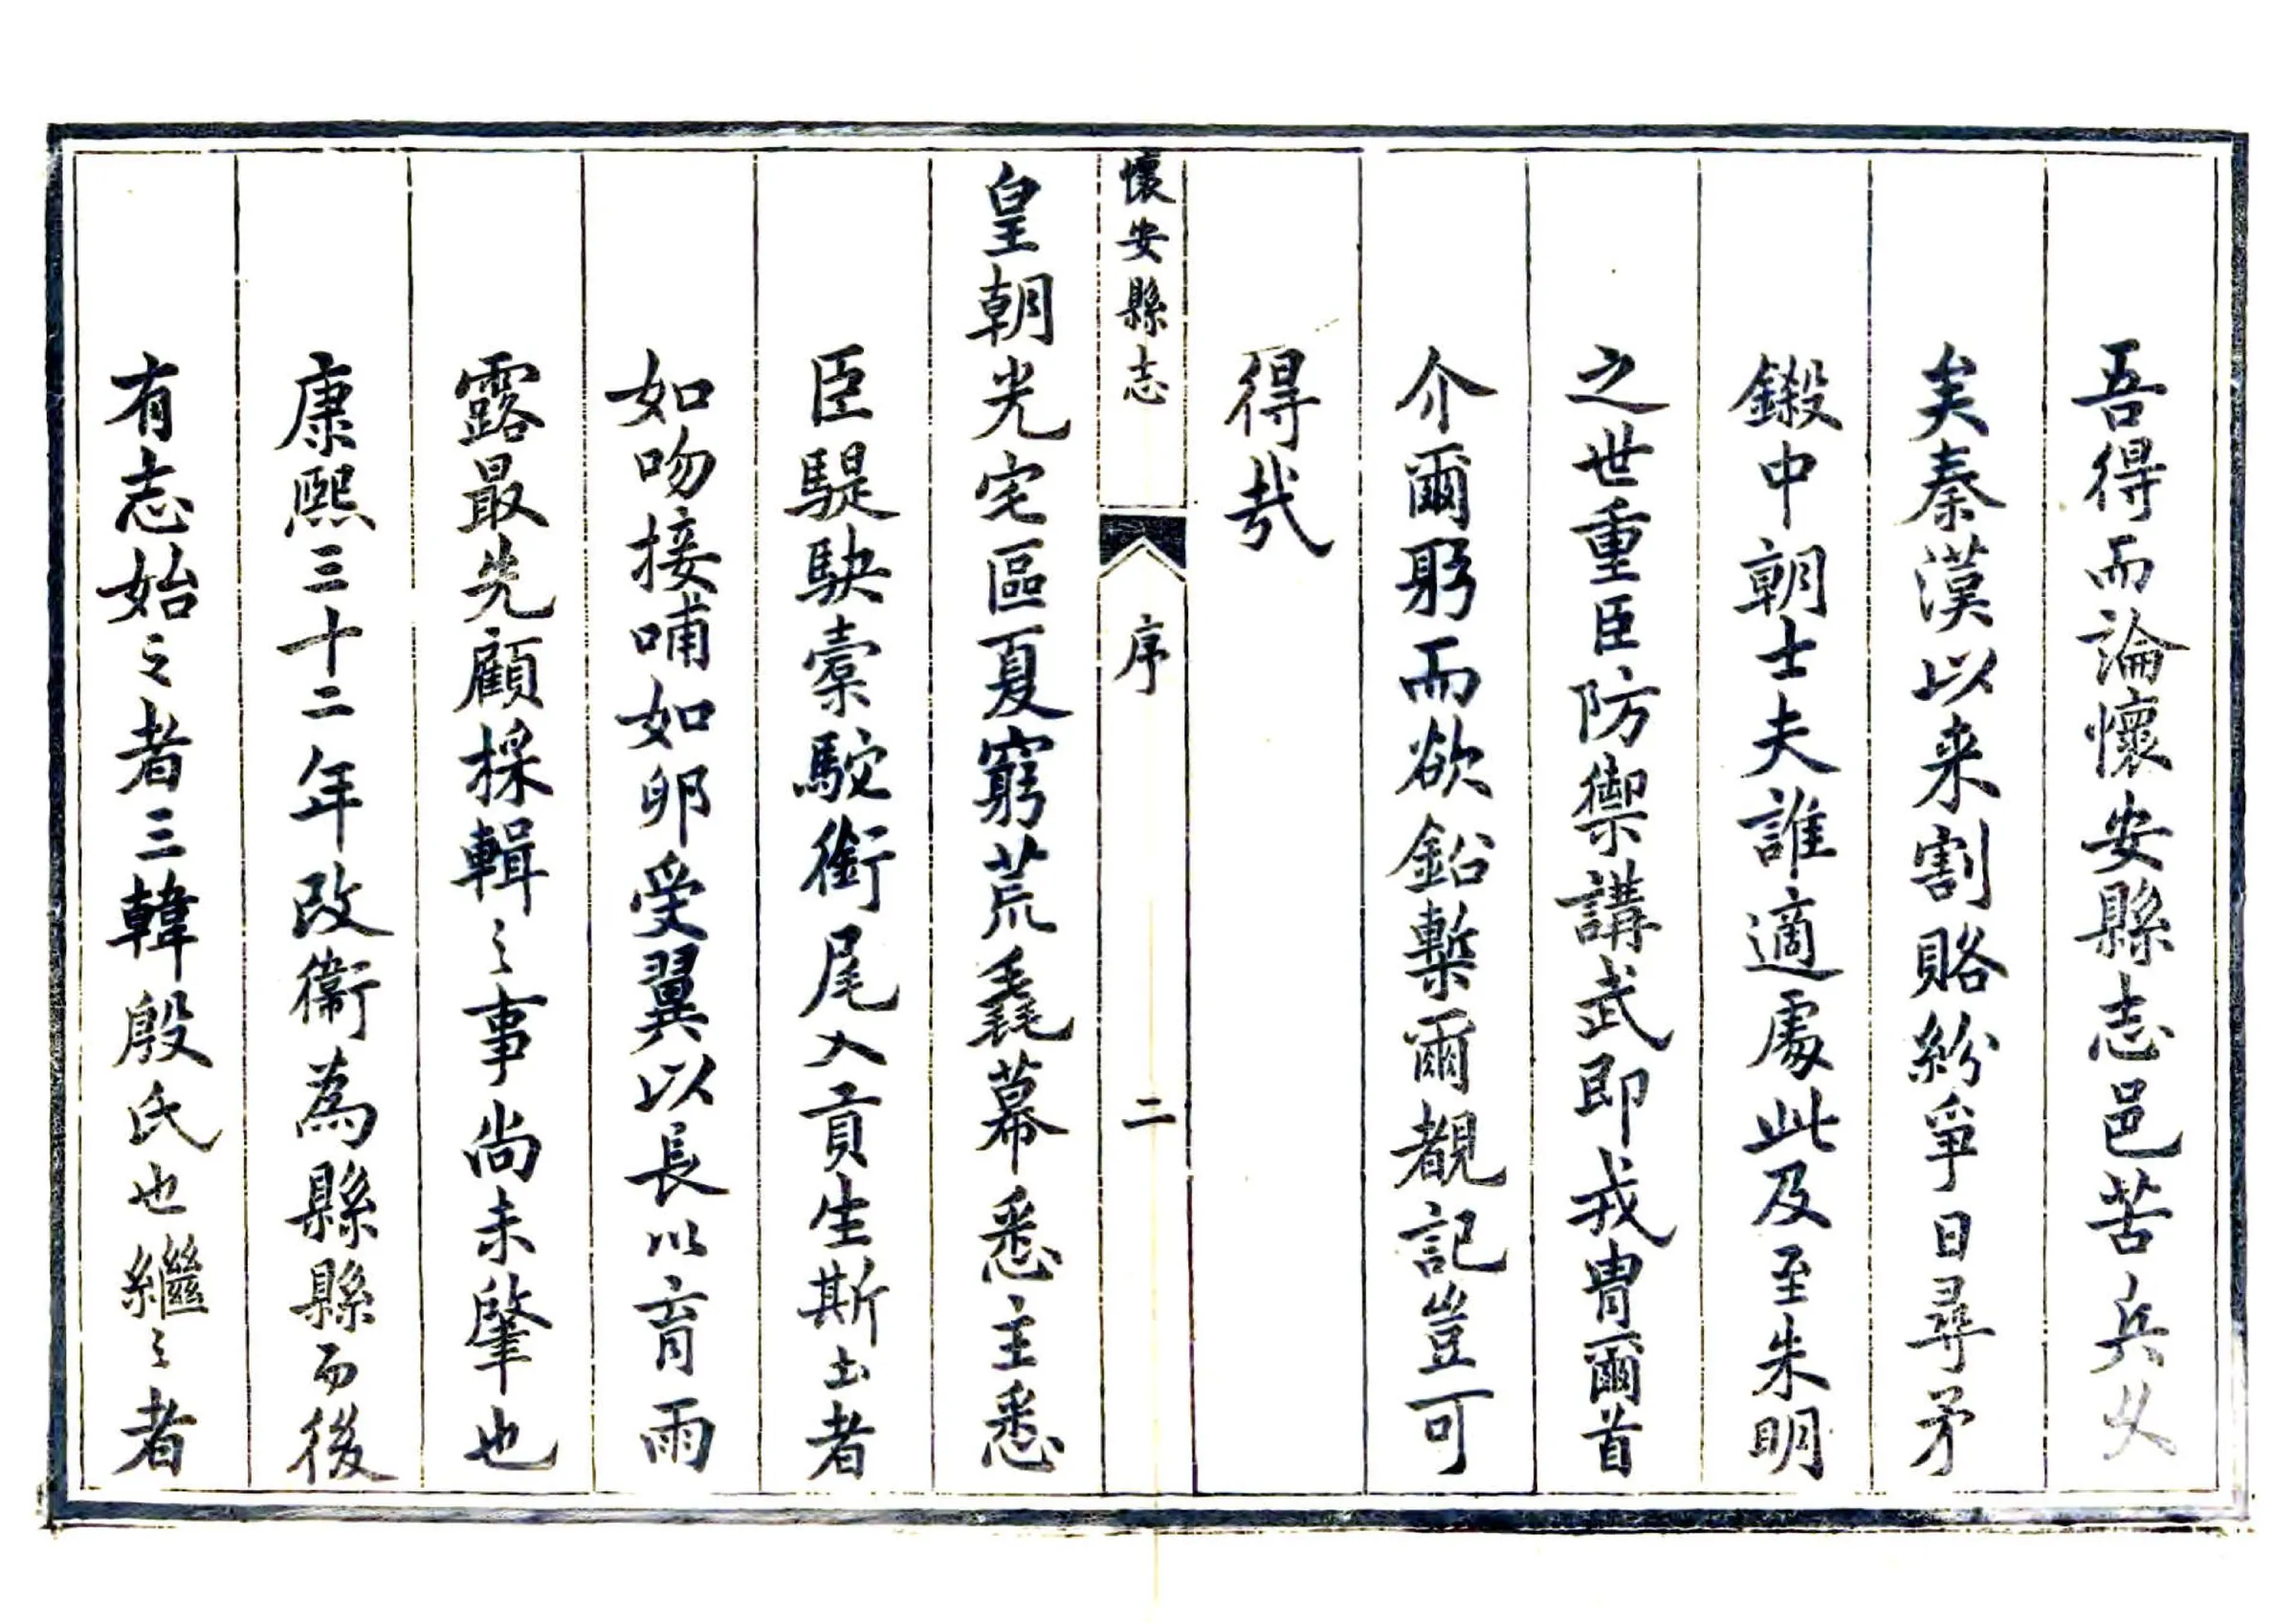 吾得而論懷安縣志邑苦兵久
矣秦漢以来割賂紛爭日尋矛
鎩中朝士夫誰適處此及至朱明
之世重臣防禦講武即戎冑爾首
介爾躬而欲鉛槧爾覩記豈可
得㢤
懷安縣志
序
二
皇朝光宅區夏窮荒毳幕悉主悉
臣騠駃橐駝銜尾入貢生斯土者
如吻接哺如卵受翼以長以育雨
露最先顧採輯之事尚未肇也
康熙三十二年改衞為縣縣而後
有志始之者三韓殷氏也繼之者